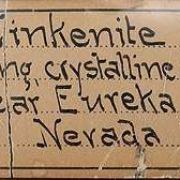 inkenite
ng, crystalline
ear Eureka
Nevada